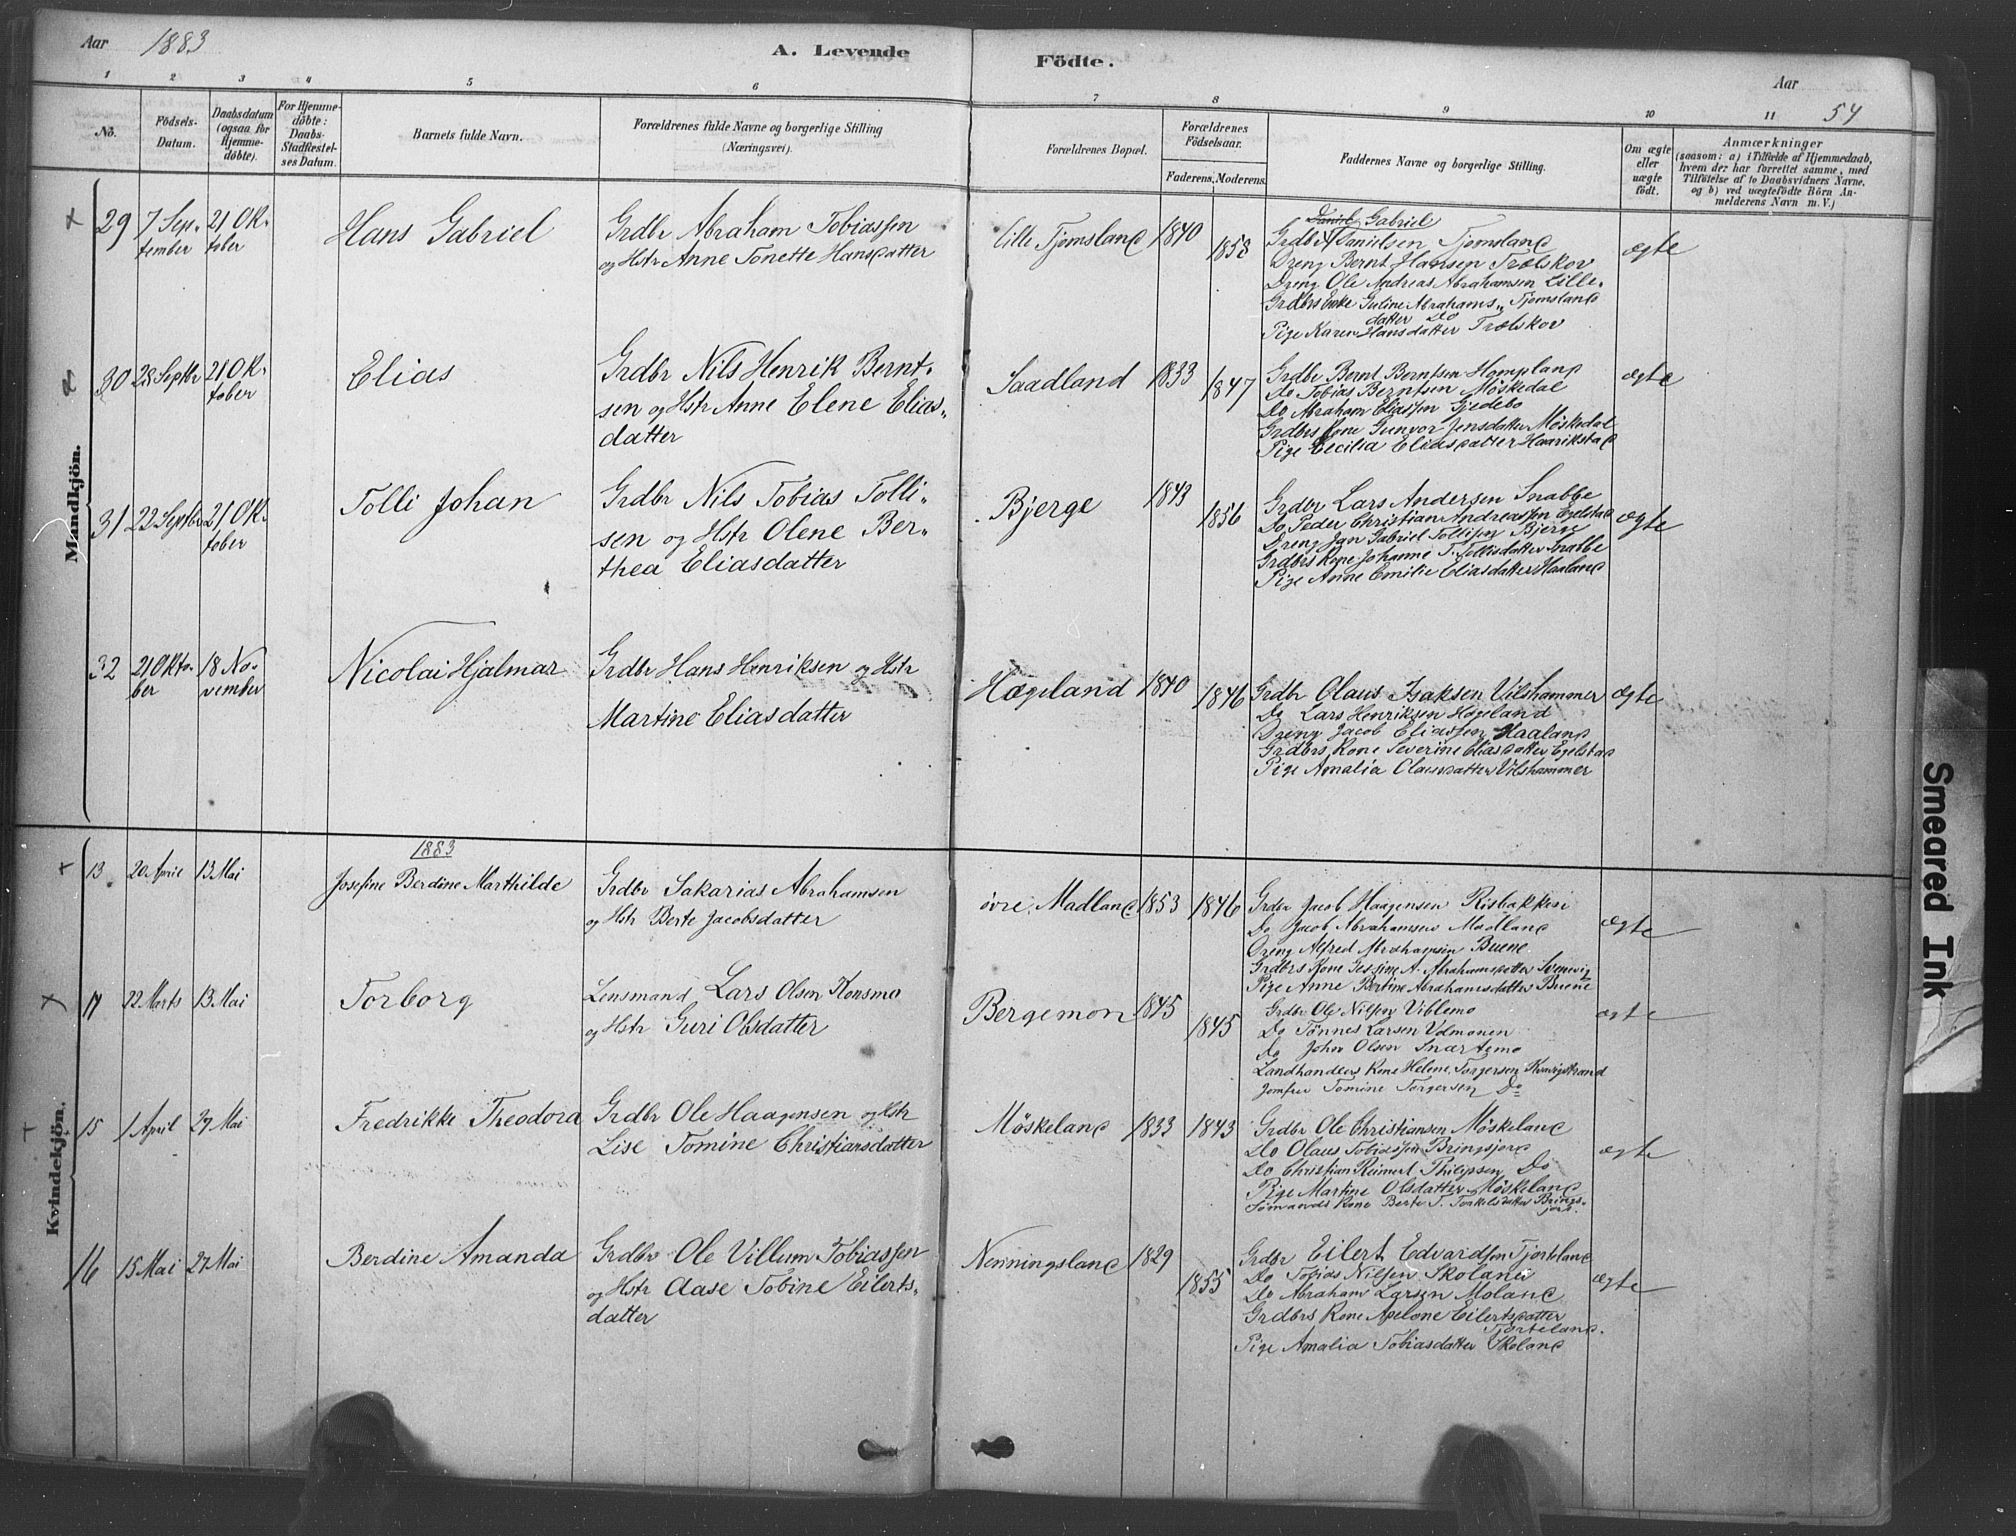 Aar 1883
A. Levende Födte.
Aar
54
1 2 3 4 5 6 7 8 9 10 11
No.
Födsels-
Datum.
Daabsdatum
(ogsaa for
Hjemme-
döbte).
For Hjemme-
döbte:
Daabs-
Stadfæstel-
ses Datum.
Barnets fulde Navn.
Forældrenes fulde Navne og borgerlige Stilling
(Næringsvei).
Forældrenes Bopæl.
Forældrenes
Födselsaar.
Faderens. Moderens.
Faddernes Navne og borgerlige Stilling.
Om ægte
eller
uægte
født.
Anmærkninger
(saasom: a) i Tilfælde af Hjemmedaab,
hvem der har forrettet samme, med
Tilföielse af to Daabsvidners Navne,
og b) ved uægtefödte Börn An-
melderens Navn m. V.)
Mandkjön.
29
7 Sep-
tember
21 Ok-
tober
Hans Gabriel
Grdbr Abraham Tobiassen
og Hstr Anne Tonette Hansdatter
Lille Tjomsland
1840
1853
Daniel Gabriel
Grdbr Danielsen Tjomsland
Dreng Bernt Hansen Trælskov
Dreng Ole Andreas Abrahamsen Lille-
Grdbrs Enke Guline Abrahams- Tjomsland
datter Do
Pige Karen Hansdatter Trælskov
ægte
30
28 Septbr
21 Ok-
tober
Elias
Grdbr Nils Henrik Bernt-
sen og Hstr Anne Elene Elias-
datter
Saadland
1833
1847
Grdbr Bernt Berntsen Hompland
Do Tobias Berntsen Möskedal
Do Abraham Eliassen Gjedebo
Grdbrs Kone Gunvor Jensdatter Möskedal
Pige Cecilia Eliasdatter Haarikstad
ægte
31
22 Septbr
21 Ok-
tober
Tolli Johan
Grdbr Nils Tobias Tolli-
sen og Hstr Olene Ber-
thea Eliasdatter
Bjerge
1843
1856
Grdbr Lars Andersen Snabbe
Do Peder Christian Andreassen Egelstad
Dreng Jan Gabriel Tollisen Bjerge
Grdbrs Kone Johanne T. Tollisdatter Snabbe
Pige Anne Emilie Eliasdatter Haaland
ægte
32
21 Okto-
ber
18 No-
vember
Nicolai Hjalmar
Grdbr Hans Henriksen og Hstr
Martine Eliasdatter
Hægeland
1840
1846
Grdbr Olaus Isaksen Vilshammer
Do Lars Henriksen Hægeland
Dreng Jacob Eliassen Haaland
Grdbrs Kone Severine Eliasdatter Egelstad
Pige Amalia Olausdatter Vilshammer
ægte
Kvindekjön.
1883
13
20 April
13 Mai
Josefine Berdine Marthilde
Grdbr Sakarias Abrahamsen
og Hstr Berte Jacobsdatter
övre Madland
1853
1846
Grdbr Jacob Haagensen Risbakken
Do Jacob Abrahamsen Madland
Dreng Alfred Abrahamsen Buene
Grdbrs Kone Gessine A. Abrahamsdatter Svenevig
Pige Anne Bertine Abrahamsdatter Buene
ægte
22 Marts
13 Mai
Torborg
Lensmand Lars Olsen Konsmo
og Hstr Guri Olsdatter
Bergemon
1845
1845
Grdbr Ole Nilsen Viblemo
Do Tönnes Larsen Udmonen
Do John Olsen Snartemo
Landhandlers Kone Helene Torgersen Kvavigstrand
Jomfru Tomine Torgersen Do
ægte
15
1 April
27 Mai
Fredrikke Theodora
Grdbr Ole Haagensen og Hstr
Lise Tomine Christiansdatter
Möskeland
1833
1843
Grdbr Ole Christiansen Möskeland
Do Olaus Tobiassen Bringsjord
Do Christian Reinert Philipsen Do
Pige Martine Olsdatter Möskeland
Sömands Kone Berte T. Torkelsdatter Brings-
jord.
ægte
16
15 Mai
27 Mai
Berdine Amanda
Grdbr Ole Villum Tobiassen
og Hstr Aase Tobine Eilerts-
datter
Nenningsland
1829
1855
Grdbr Eilert Edvardsen Tjorteland
Do Tobias Nilsen Skoland
Do Abraham Larsen Moland
Grdbrs Kone Apelone Eilertsdatter
Tjorteland.
Pige Amalia Tobiasdatter Skoland
ægte
Smeared Ink